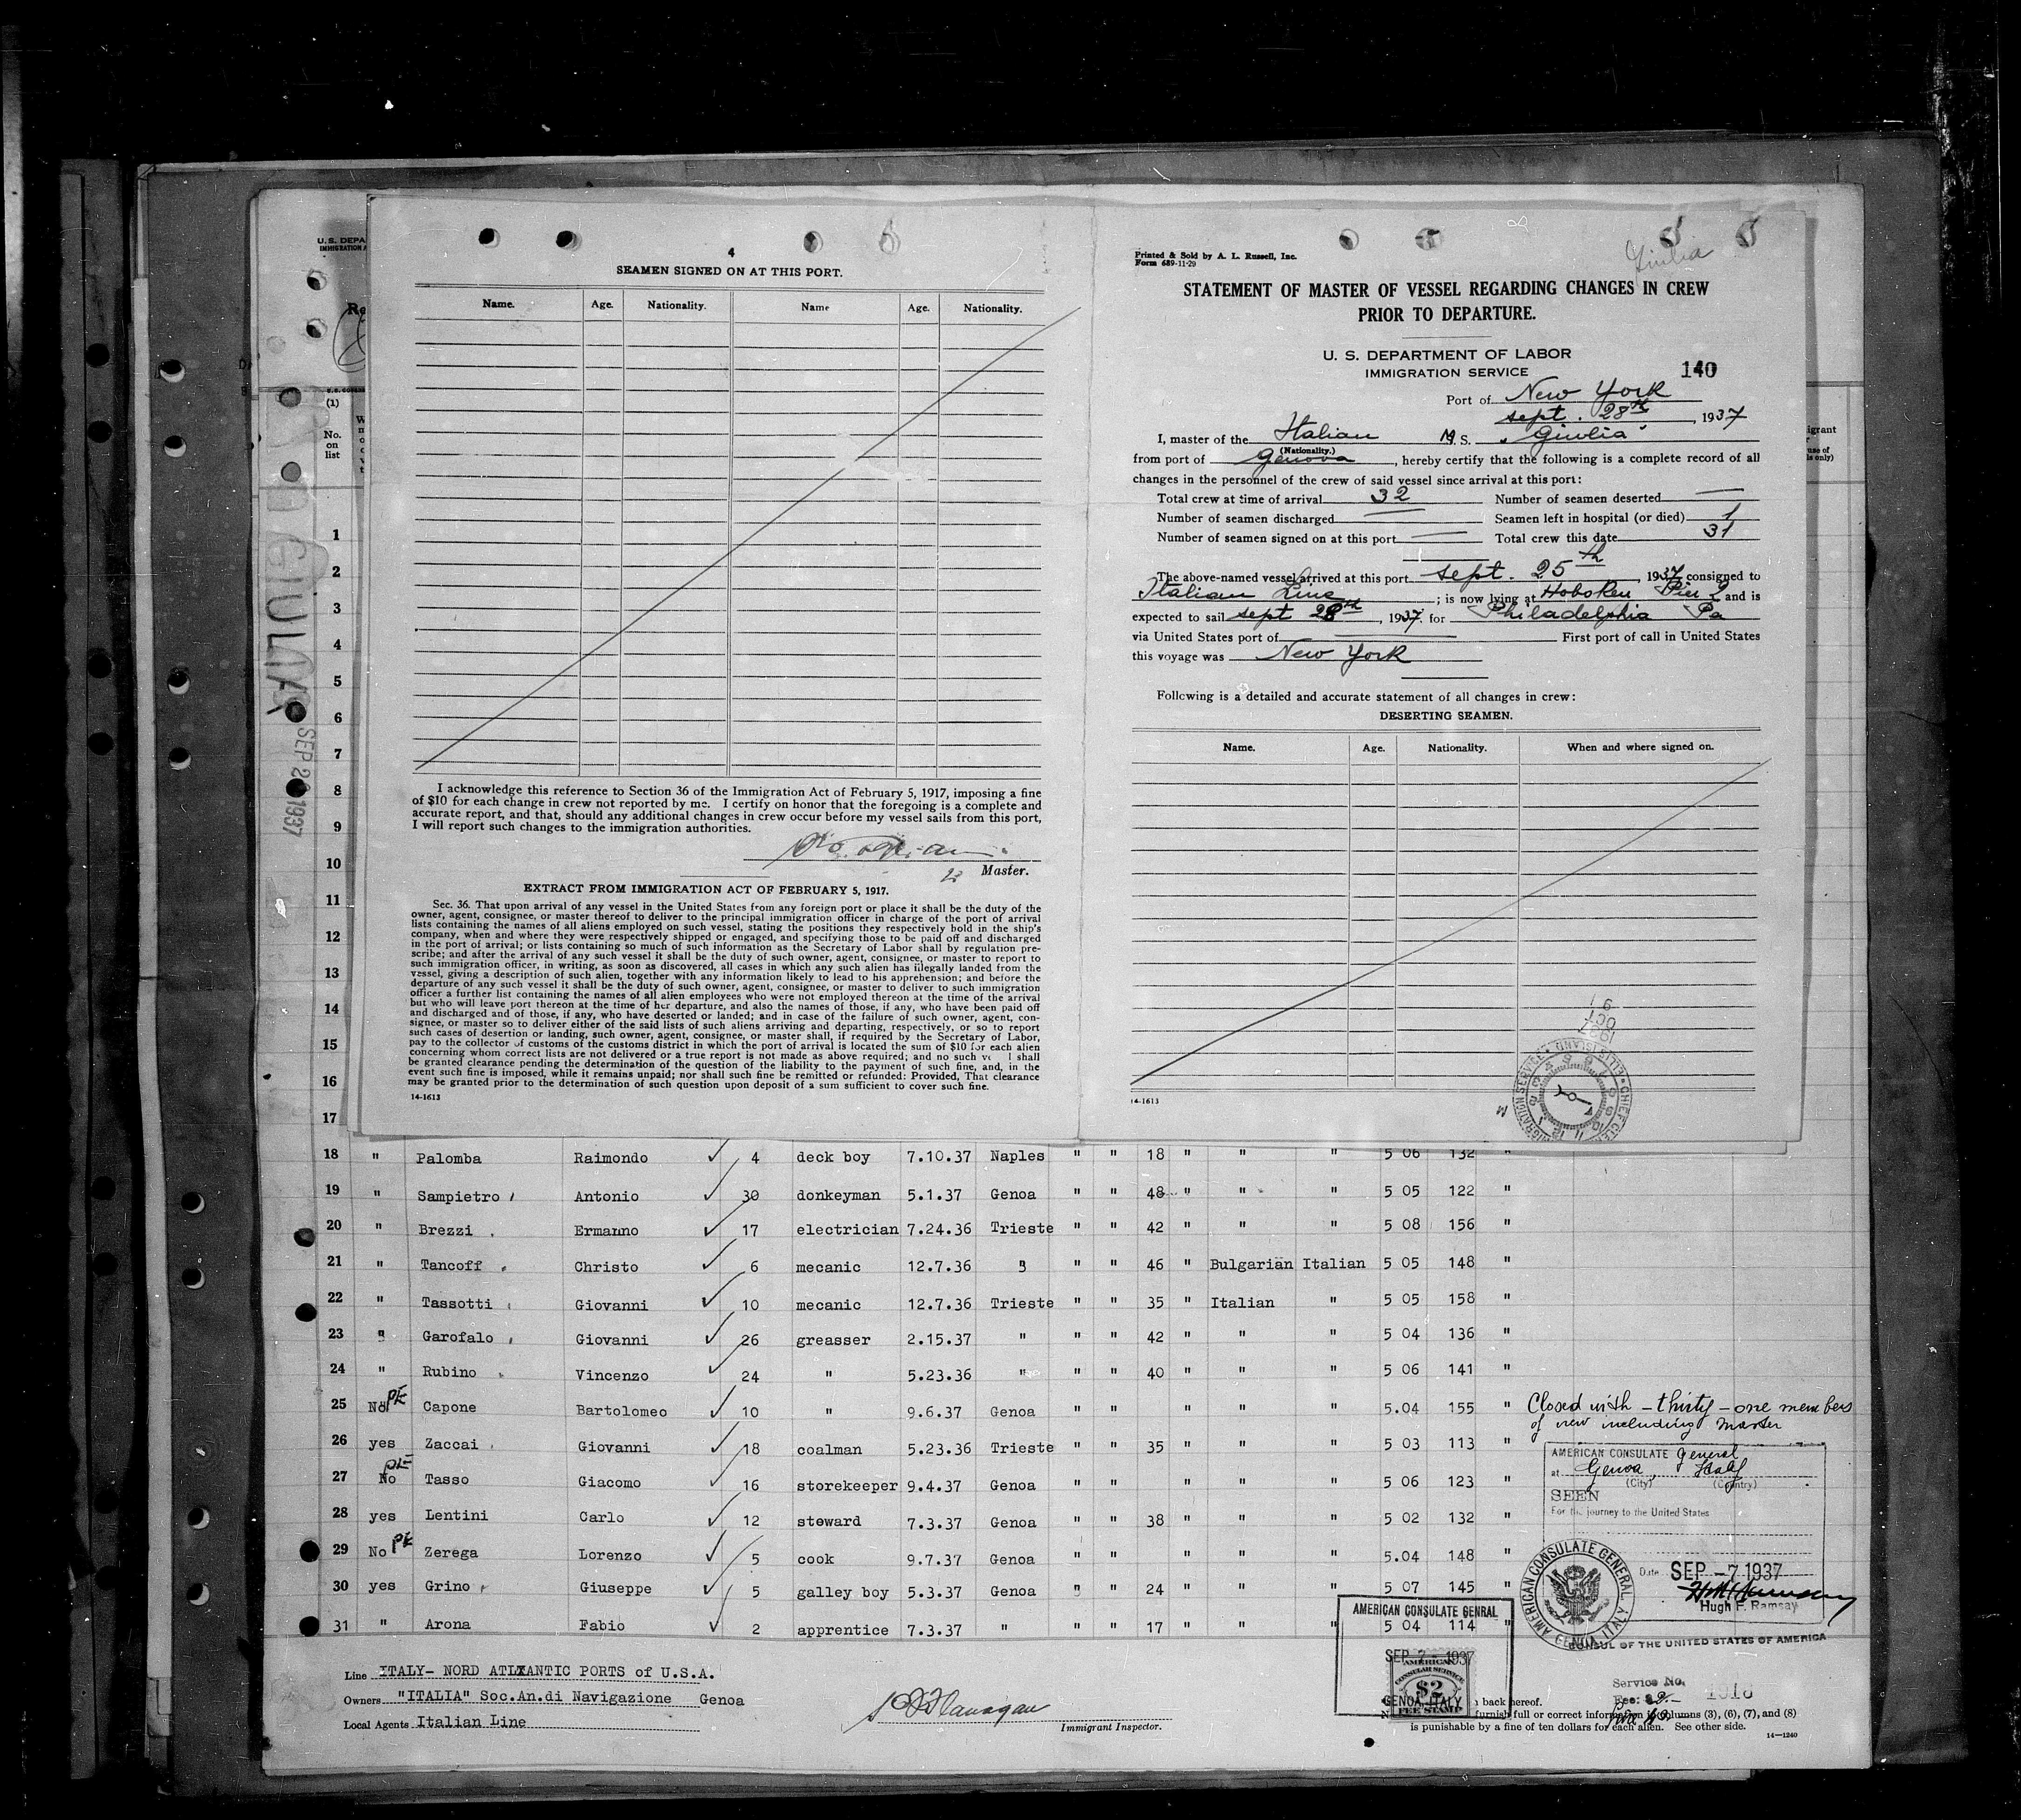 U. S. DEPA
IMMIGRATION
4
SEAMEN SIGNED ON AT THIS PORT.
Name. Age. Nationality. Name Age. Nationality.
I acknowledge this reference to Section 36 of the Immigration Act of February 5, 1917, imposing a fine
of $10 for each change in crew not reported by me. I certify on honor that the foregoing is a complete and
accurate report, and that, should any additional changes in crew occur before my vessel sails from this port,
I will report such changes to the immigration authorities.
Master.
EXTRACT FROM IMMIGRATION ACT OF FEBRUARY 5, 1917.
Sec. 36. That upon arrival of any vessel in the United States from any foreign port or place it shall be the duty of the
owner, agent, consignee, or master thereof to deliver to the principal immigration officer in charge of the port of arrival
lists containing the names of all aliens employed on such vessel, stating the positions they respectively hold in the ship's
company, when and where they were respectively shipped or engaged, and specifying those to be paid off and discharged
in the port of arrival; or lists containing so much of such information as the Secretary of Labor shall by regulation pre-
scribe; and after the arrival of any such vessel it shall be the duty of such owner, agent, consignee, or master to report to
such immigration officer, in writing, as soon as discovered, all cases in which any such alien has illegally landed from the
vessel, giving a description of such alien, together with any information likely to lead to his apprehension; and before the
departure of any such vessel it shall be the duty of such owner, agent, consignee, or master to deliver to such immigration
officer a further list containing the names of all alien employees who were not employed thereon at the time of the arrival
but who will leave port thereon at the time of her departure, and also the names of those, if any, who have been paid off
and discharged and of those, if any, who have deserted or landed; and in case of the failure of such owner, agent, con-
signee, or master so to deliver either of the said lists of such aliens arriving and departing, respectively, or so to report
such cases of desertion or landing, such owner, agent, consignee, or master shall, if required by the Secretary of Labor,
pay to the collector of customs of the customs district in which the port of arrival is located the sum of $10 for each alien
concerning whom correct lists are not delivered or a true report is not made as above required; and no such ve l shall
be granted clearance pending the determination of the question of the liability to the payment of such fine, and, in the
event such fine is imposed, while it remains unpaid; nor shall such fine be remitted or refunded: Provided, That clearance
may be granted prior to the determination of such question upon deposit of a sum sufficient to cover such fine.
14-1613
Giulia
Printed & Sold by A. L. Russell, Inc.
Form 689-11-29
STATEMENT OF MASTER OF VESSEL REGARDING CHANGES IN CREW
PRIOR TO DEPARTURE.
U. S. DEPARTMENT OF LABOR
IMMIGRATION SERVICE
140
Port of New York
sept. 28th, 1937
I, master of the Italian M. S. "Giulia"
(Nationality.)
from port of Genova, hereby certify that the following is a complete record of all
changes in the personnel of the crew of said vessel since arrival at this port:
Total crew at time of arrival 32 Number of seamen deserted —
Number of seamen discharged — Seamen left in hospital (or died) 1
Number of seamen signed on at this port — Total crew this date 31
The above-named vessel arrived at this port sept. 25th, 1937 consigned to
Italian Line; is now lying at Hoboken Pier 2 and is
expected to sail sept 28th, 1937. for Philadelphia Pa
via United States port of — First port of call in United States
this voyage was New York
Following is a detailed and accurate statement of all changes in crew:
DESERTING SEAMEN.
Name. Age. Nationality. When and where signed on.
14-1613
OCT
IMMIGRATION SERVICE ELLIS ISLAND CHIEF
(1)
No.
on
list
igrant
use of
ls only)
GIULIA
SEP 2 1937
1
2
3
4
5
6
7
8
9
10
11
12
13
14
15
16
17
18 " Palomba Raimondo 4 deck boy 7.10.37 Naples " " 18 " " " 5 06 132 "
19 " Sampietro Antonio 30 donkeyman 5.1.37 Genoa " " 48 " " " 5 05 122 "
20 " Brezzi Ermanno 17 electrician 7.24.36 Trieste " " 42 " " " 5 08 156 "
21 " Tancoff Christo 6 mecanic 12.7.36 " " " 46 " Bulgarian Italian 5 05 148 "
22 " Tassotti Giovanni 10 mecanic 12.7.36 Trieste " " 35 " Italian " 5 05 158 "
23 " Garofalo Giovanni 26 greasser 2.15.37 " " " 42 " " " 5 04 136 "
24 " Rubino Vincenzo 24 " 5.23.36 " " " 40 " " " 5 06 141 "
25 No PE Capone Bartolomeo 10 " 9.6.37 Genoa " " " " " 5.04 155 "
26 yes Zaccai Giovanni 18 coalman 5.23.36 Trieste " " 35 " " " 5 03 113 "
27 No PE Tasso Giacomo 16 storekeeper 9.4.37 Genoa " " " " " 5 06 123 "
28 yes Lentini Carlo 12 steward 7.3.37 Genoa " " 38 " " " 5 02 132 "
29 No PE Zerega Lorenzo 5 cook 9.7.37 Genoa " " " " " 5.04 148 "
30 yes Grino Giuseppe 5 galley boy 5.3.37 Genoa " " 24 " " " 5 07 145 "
31 " Arona Fabio 2 apprentice 7.3.37 " " " 17 " " " 5 04 114 "
Closed with – thirty – one members
of crew including Master
AMERICAN CONSULATE General
at Genoa, Italy
(City) (Country)
SEEN
For the journey to the United States
Date SEP -7 1937
Hugh F. Ramsay
CONSUL OF THE UNITED STATES OF AMERICA
AMERICAN CONSULATE GENERAL GENOA ITALY
AMERICAN CONSULATE GENRAL
SEP 7 - 1937
AMERICAN
CONSULAR SERVICE
$2
GENOA, ITALY
FEE STAMP
Service No. 1018
Fee:
Line ITALY- NORD ATLXANTIC PORTS of U.S.A.
Owners "ITALIA" Soc.An.di Navigazione Genoa
Local Agents Italian Line
Flanagan
Immigrant Inspector.
back hereof.
furnish full or correct information in columns (3), (6), (7), and (8)
is punishable by a fine of ten dollars for each alien. See other side.
14—1240